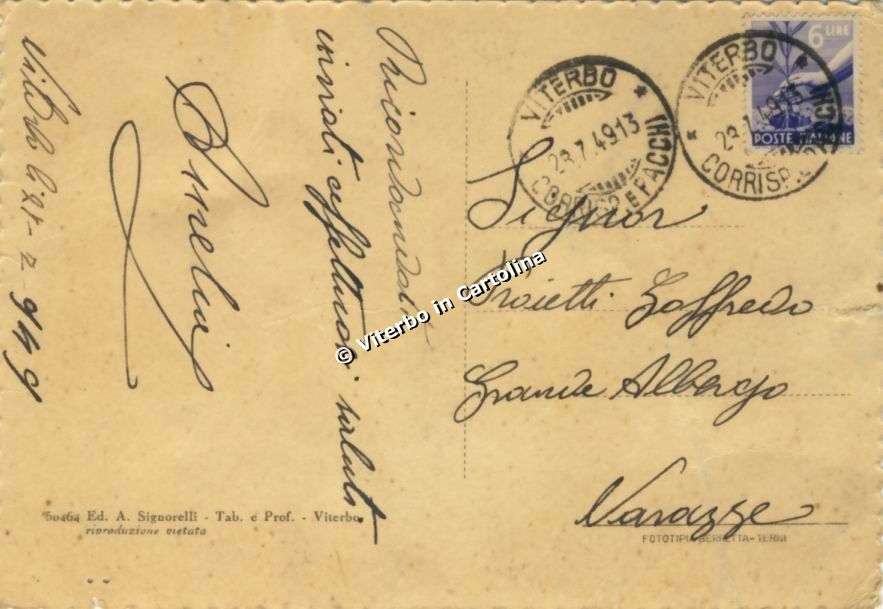 Viterbo li 27-7-949
Ricordandoti
inviati affettuosi saluti
Amelia
6 LIRE
POSTE ITALIANE
VITERBO
28.7.49.13
CORRISP. E PACCHI
VITERBO
28.7.49.13
CORRISP. E PACCHI
Signor
Proietti Goffredo
Grande Albergo
Varazze
© Viterbo in Cartolina
50464 Ed. A. Signorelli - Tab. e Prof. - Viterbo
riproduzione vietata
FOTOTIPIA BERRETTA-TERNI